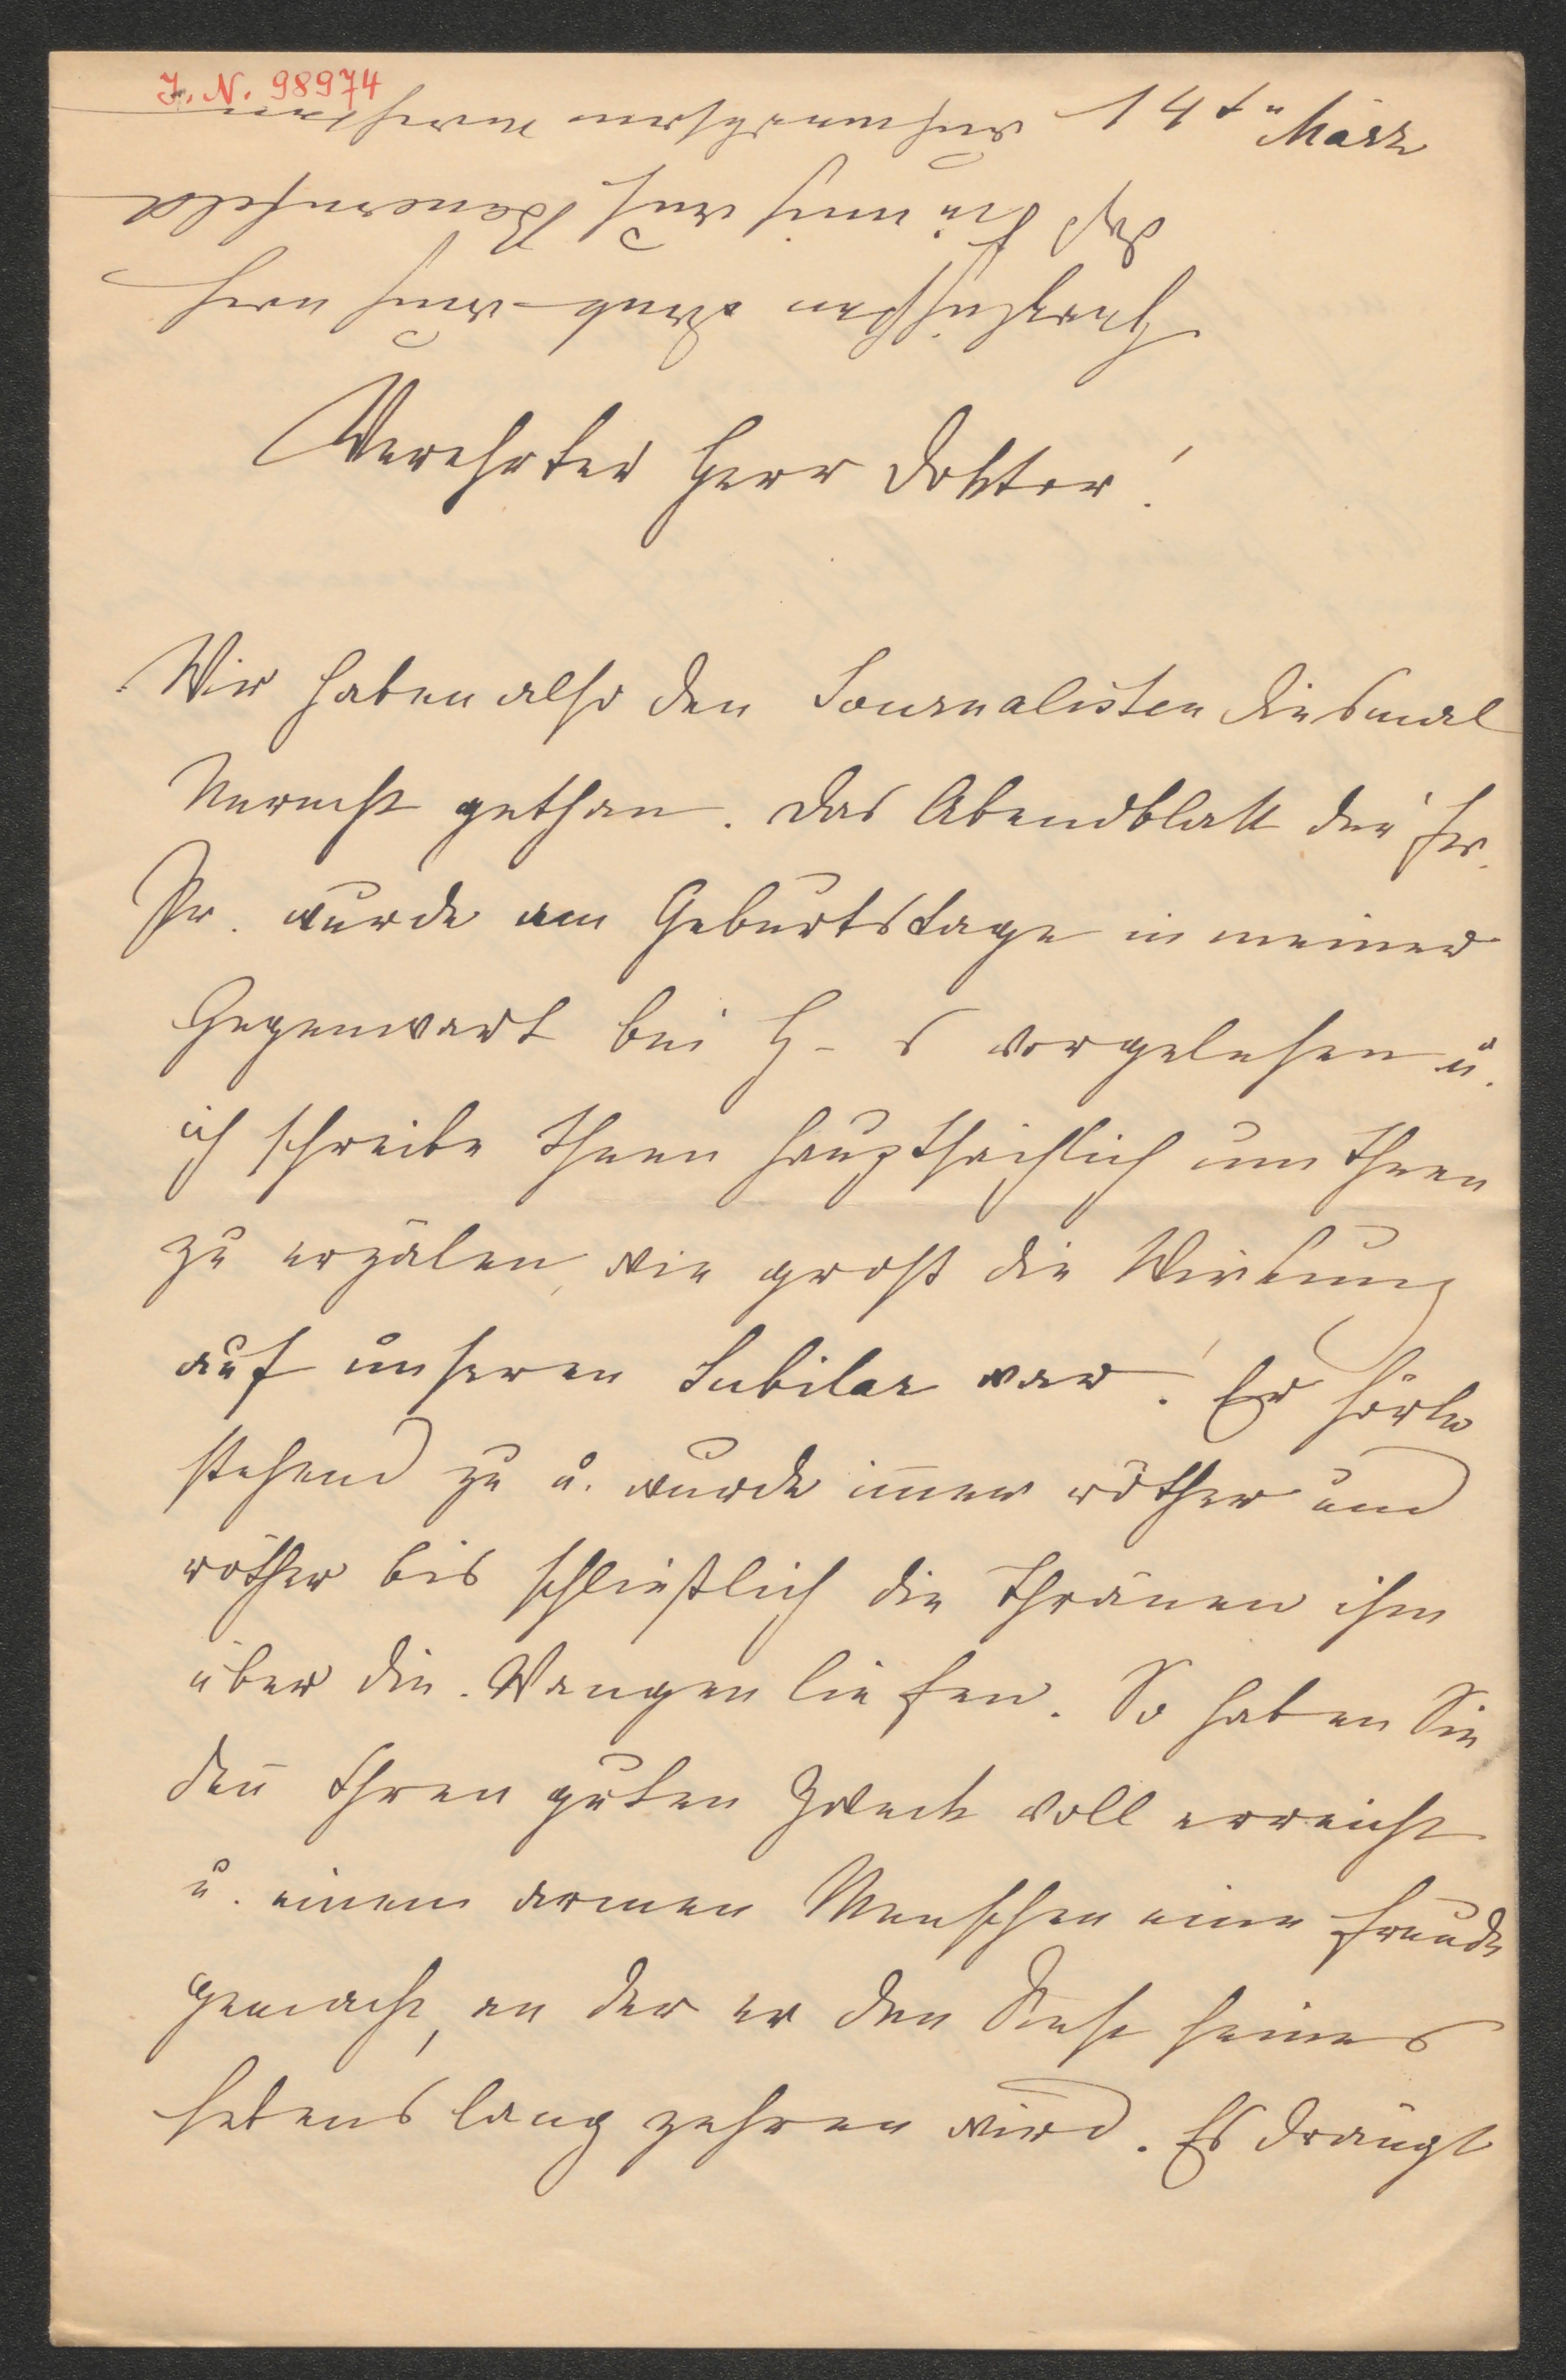 I. N. 98974
14t März
Herzlichsten Dank auch noch
daß Sie mich auch Bauernfeld
Verehrter Herr Doktor!
Wir haben also den Journalisten diesmal
Unrecht gethan. Das Abendblatt der fr.
Pr. wurde am Geburtstage in meiner
Gegenwart bei H – s vorgelesen u.
ich schreibe Ihnen hauptsächlich um Ihnen
zu erzälen, wie groß die Wirkung
auf unseren Jubilar war! Er hörte
stehend zu u. wurde im̅er röther und
röther bis schließlich die Thränen ihm
über die Wangen liefen. So haben Sie
den̅ Ihren guten Zweck voll erreicht
u. einem armen Menschen eine Freude
gemacht, an der er den Rest seines
Lebens lang zehren wird. Es drängt